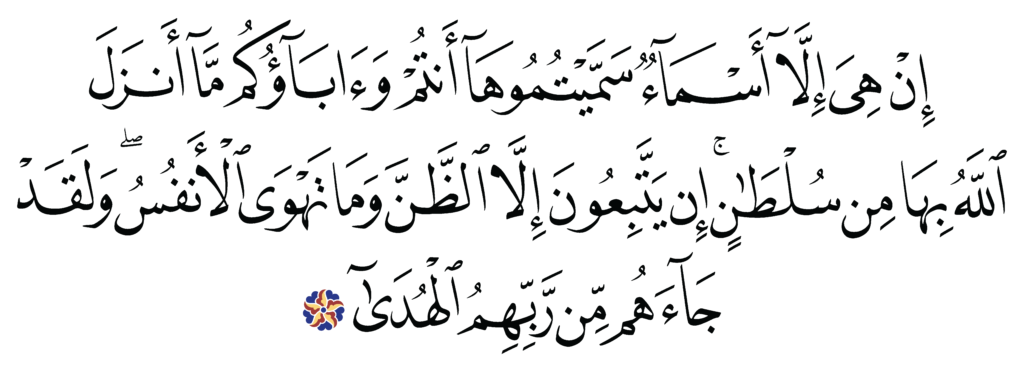 إِنْ هِىَ إِلَّآ أَسْمَآءٌ سَمَّيْتُمُوهَآ أَنتُمْ وَءَابَآؤُكُم مَّآ أَنزَلَ
ٱللَّهُ بِهَا مِن سُلْطَـٰنٍ ۚ إِن يَتَّبِعُونَ إِلَّا ٱلظَّنَّ وَمَا تَهْوَى ٱلْأَنفُسُ ۖ وَلَقَدْ
جَآءَهُم مِّن رَّبِّهِمُ ٱلْهُدَىٰٓ